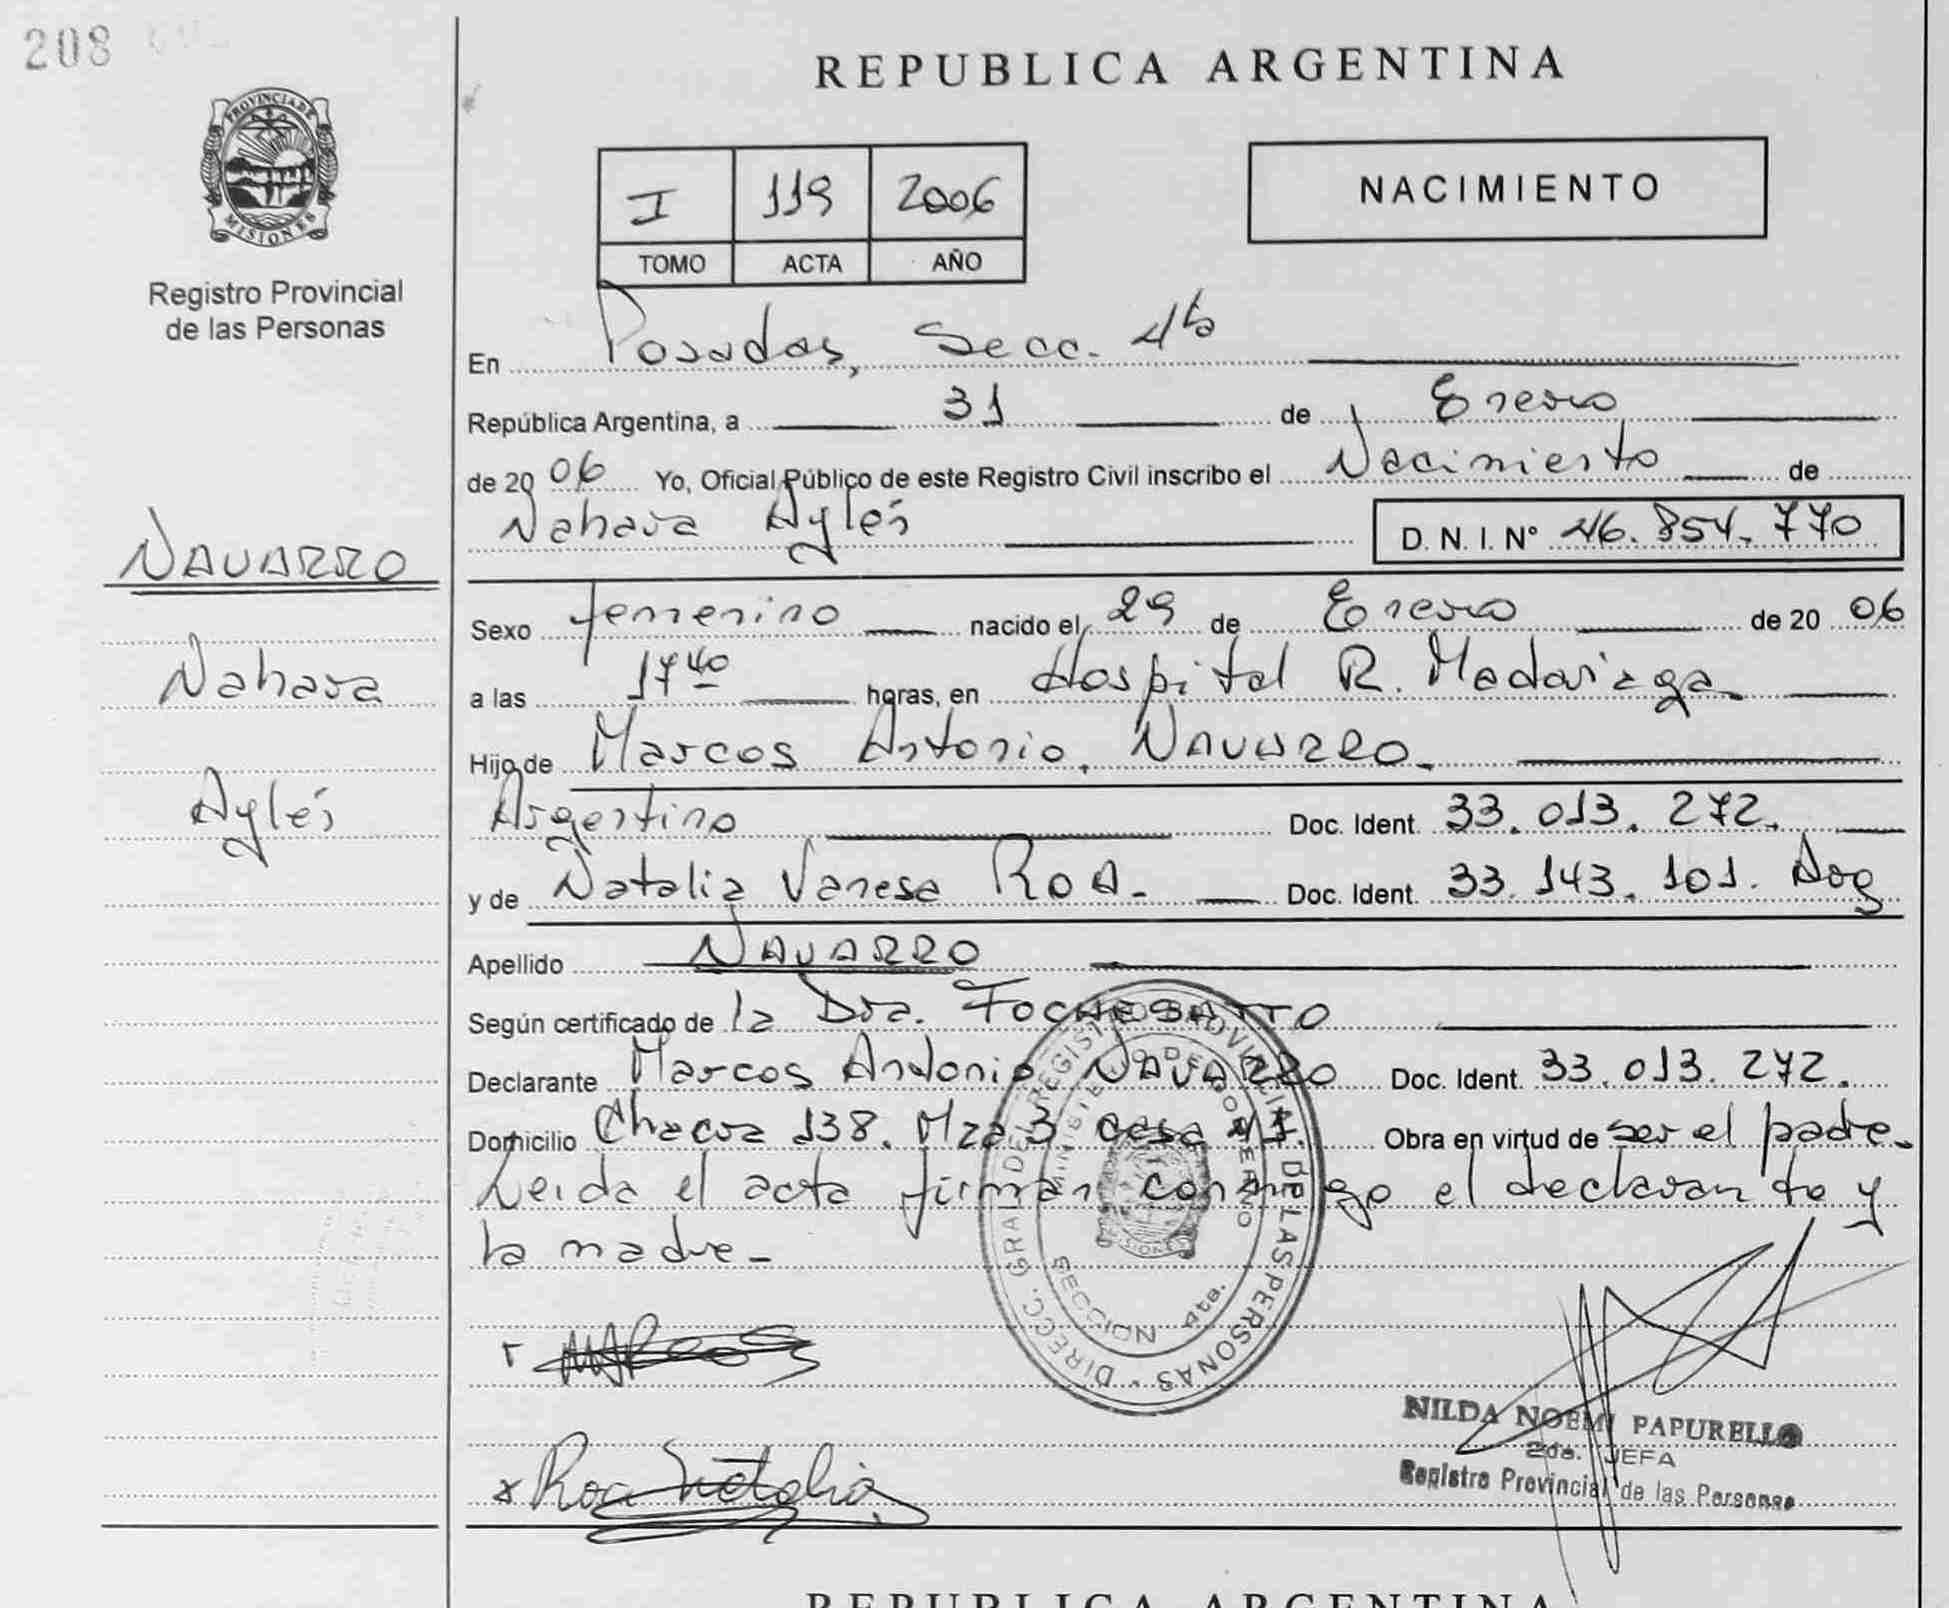 208
PROVINCIA DE
MISIONES
Registro Provincial
de las Personas
NAVARRO
Nahara
Aylés
REPUBLICA ARGENTINA
I 119 2006
TOMO ACTA AÑO
NACIMIENTO
En Posadas, Secc. 4ta
República Argentina, a 31 de Enero
de 2006 Yo, Oficial Público de este Registro Civil inscribo el Nacimiento de
Nahara Aylés D. N. I. N° 46.854.770
Sexo femenino nacido el 29 de Enero de 20 06
a las 17 40 horas, en Hospital R. Madariaga
Hijo de Marcos Antonio NAVARRO.
Argentino Doc. Ident. 33.013.272.
y de Natalia Vanesa ROA. Doc. Ident. 33.143.101. Arg
Apellido NAVARRO
Según certificado de la Dra. FOCHESATTO
Declarante Marcos Antonio NAVARRO Doc. Ident. 33.013.272.
Domicilio Chacra 138. Mza 3 casa Obra en virtud de ser el padre.
Leida el acta firman conmigo el declarante y
la madre.
DIRECC. GRAL DE REGISTRO PROVINCIAL DE LAS PERSONAS
MINISTERIO DE GOBIERNO
MISIONES
SECCION 4ta.
Roa Natalia
NILDA NOEMI PAPURELLO
2da. JEFA
Registro Provincial de las Personas
REPUBLICA ARGENTINA